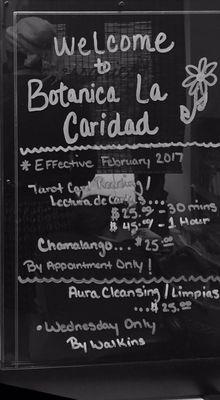 Welcome
to
Botanica La
Caridad
* Effective February 2017
Tarot Card Reading/
Lectura de Cartas...
$25.00 - 30 mins
$45.00 - 1 Hour
Chamalango... $25.00
By Appointment Only!
Aura Cleansing/Limpias
...$25.00
• Wednesday Only
By Walkins